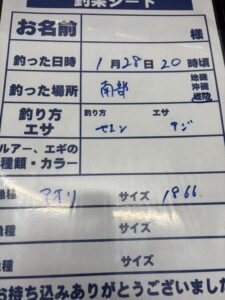 釣果シート
お名前 様
釣った日時 1月28日20時頃
釣った場所 南部 地磯
沖磯
堤防
釣り方 釣り方 エサ
エサ ヤエン アジ
ルアー、エギの
種類・カラー
魚種 アオリ サイズ 1966
魚種 サイズ
魚種 サイズ
お持ち込みありがとうございました